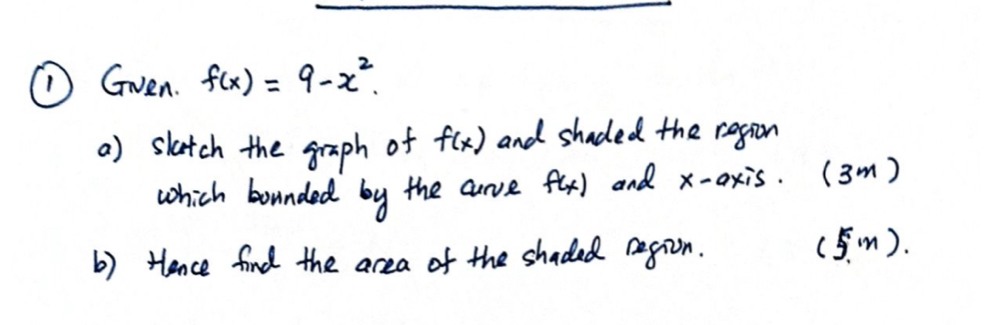 ① Given. f(x) = 9-x².
a) sketch the graph of f(x) and shaded the region
which bounnded by the curve f(x) and x-axis. (3m)
b) Hence find the area of the shaded region. (5m).